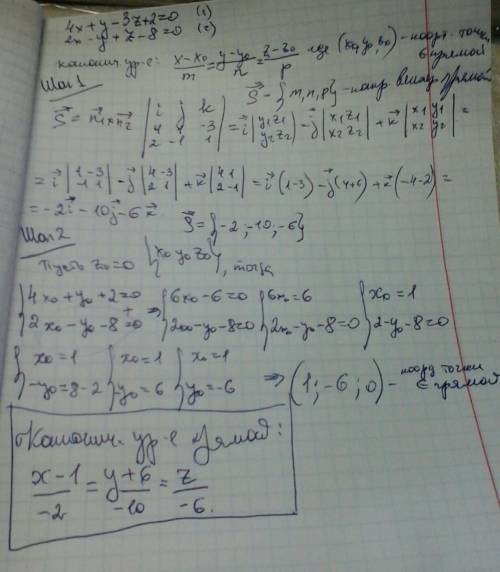 4x + y - 3z + 2 = 0 (1)
2x - y + z - 8 = 0 (2)
канонич. ур-е: (x - x₀)/m = (y - y₀)/n = (z - z₀)/p где (x₀, y₀, z₀) - коорд. точки ∈ прямой
Шаг 1
S⃗ - {m, n, p} - напр. вектор прямой
S⃗ = n⃗₁ × n⃗₂ |i j k; 4 1 -3; 2 -1 1| = i⃗ |y₁ z₁; y₂ z₂| - j⃗ |x₁ z₁; x₂ z₂| + k⃗ |x₁ y₁; x₂ y₂| =
= i⃗ |1 -3; -1 1| - j⃗ |4 -3; 2 1| + k⃗ |4 1; 2 -1| = i⃗ (1-3) - j⃗ (4+6) + k⃗ (-4-2) =
= -2i⃗ - 10j⃗ - 6k⃗ S⃗ = {-2; -10; -6}
Шаг 2
Пусть z₀ = 0 {x₀ y₀ z₀}, тогда
{4x₀ + y₀ + 2 = 0; 2x₀ - y₀ - 8 = 0 + ⇒ {6x₀ - 6 = 0; 2x₀ - y₀ - 8 = 0 {6x₀ = 6; 2x₀ - y₀ - 8 = 0 {x₀ = 1; 2 - y₀ - 8 = 0
{x₀ = 1; -y₀ = 8 - 2 {x₀ = 1; -y₀ = 6 {x₀ = 1; y₀ = -6 ⇒ (1; -6; 0) - коорд точки ∈ прямой
Канонич. ур-е прямой:
(x - 1)/-2 = (y + 6)/-10 = z/-6.